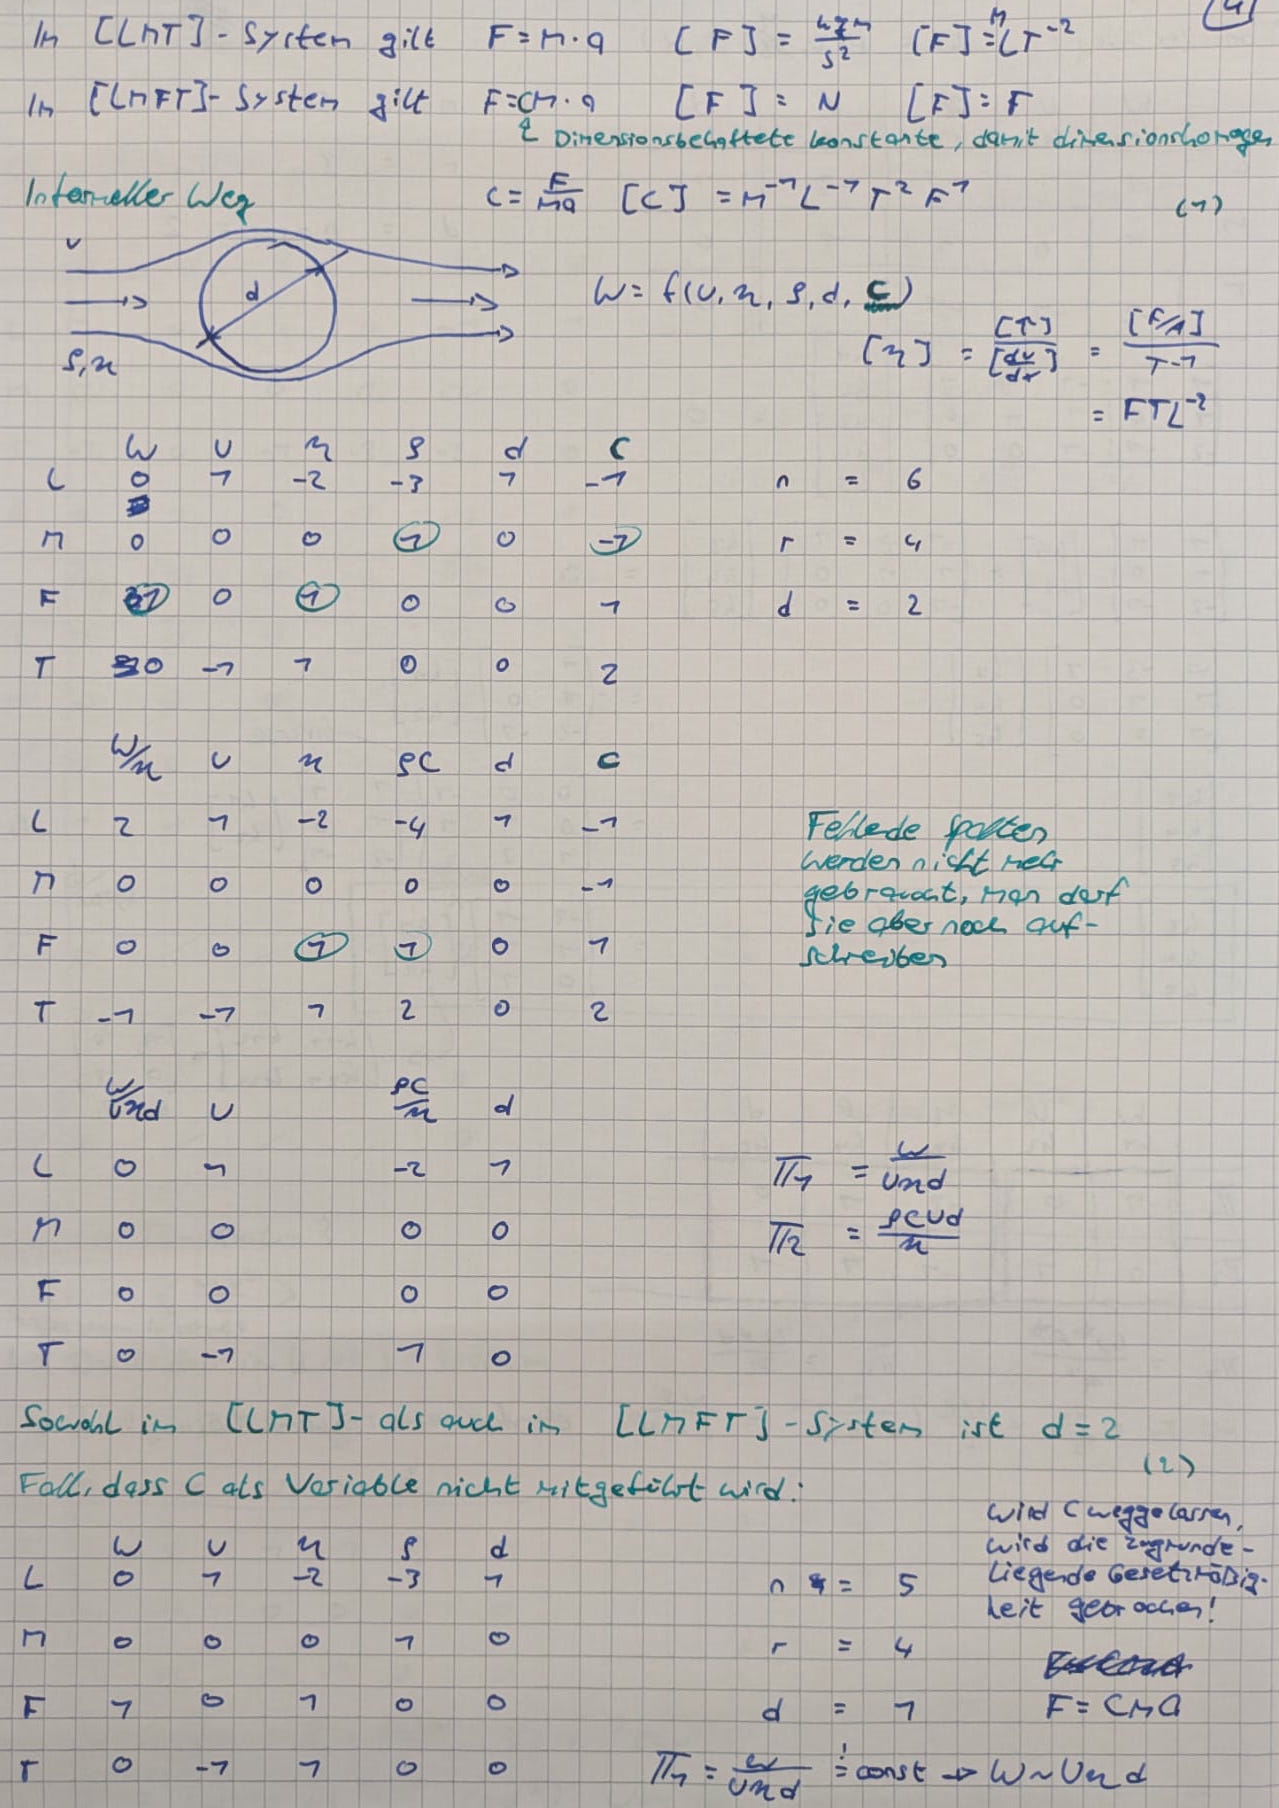 (4)
Im [LMT]-System gilt F=M·a [F] = kgm/s² [F]=MLT⁻²
Im [LMFT]-System gilt F=CM·a [F] = N [F]= F
Dimensionsbehaftete Konstante, damit dimensionshomogen
C = F/Ma [C] = M⁻¹L⁻¹T²F¹ (1)
Informeller Weg
U
d
ρ,η
W= f(U, η, ρ, d, C)
[η] = [τ]/[du/dr] = [F/A]/T⁻¹
= FTL⁻²
W U η ρ d C
L 0 1 -2 -3 1 -1 n = 6
M 0 0 0 1 0 -1 r = 4
F 1 0 1 0 0 1 d = 2
T 0 -1 1 0 0 2
W/η U η ρC d C
L 2 1 -2 -4 1 -1
M 0 0 0 0 0 -1
F 0 0 1 1 0 1
T -1 -1 1 2 0 2
Fehlede Spalten
werden nicht mehr
gebraucht, man darf
sie aber noch auf-
schreiben
W/Uηd U ρC/η d
L 0 1 -2 1
M 0 0 0 0
F 0 0 0 0
T 0 -1 1 0
Π₁ = W/Uηd
Π₂ = ρCUd/η
Sowohl im [LMT]- als auch im [LMFT]-System ist d=2
(2)
Fall, dass C als Variable nicht mitgeführt wird:
W U η ρ d
L 0 1 -2 -3 1 n = 5
M 0 0 0 1 0 r = 4
F 1 0 1 0 0 d = 1
T 0 -1 1 0 0
Wird C weggelassen,
wird die zugrunde-
liegende Gesetzmäßig-
keit gebrochen!
F= CMa
Π₁ = W/Uηd != const → W~Uηd